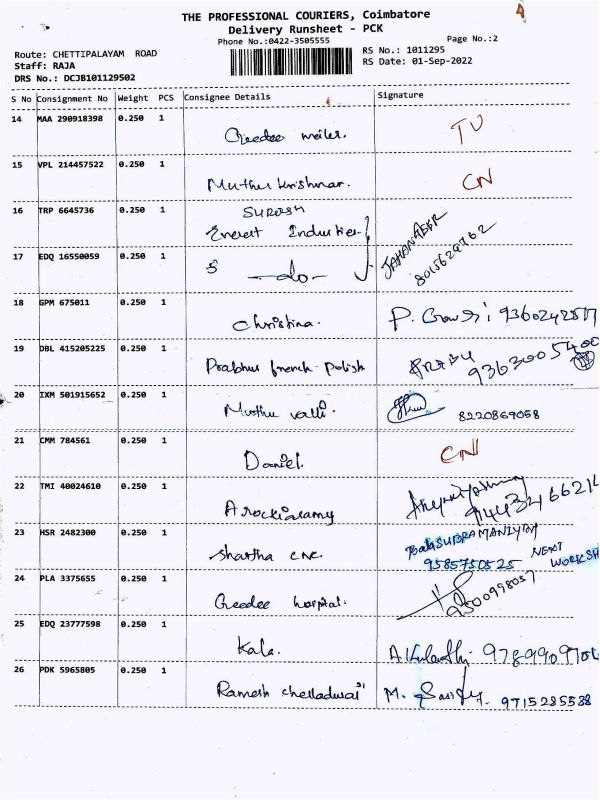 THE PROFESSIONAL COURIERS, Coimbatore
Delivery Runsheet - PCK
Phone No.:0422-3505555
Page No.:2
Route: CHETTIPALAYAM ROAD
Staff: RAJA
DRS No.: DCJB101129502
RS No.: 1011295
RS Date: 01-Sep-2022
S No Consignment No Weight PCS Consignee Details Signature
14 MAA 290918398 0.250 1
Geedee weiler. TU
15 VPL 214457522 0.250 1
Muthu krishnar. CN
16 TRP 6645736 0.250 1 SURESH
Everest Industries
JAHANGEER
8015629762
17 EDQ 16550059 0.250 1
5 —do—
18 GPM 675011 0.250 1
Christina. P. Gowri 9360242517
19 DBL 415205225 0.250 1
Prabhu french polish PRABU
9363005400
20 IXM 501915652 0.250 1
Muthu valli. 8220869058
21 CMM 784561 0.250 1
Daniel. CN
22 TMI 40024610 0.250 1
Arockiasamy 9443246621
23 HSR 2482300 0.250 1 BalaSUBRAMANIYAM
Shartha cnc. 9585750525 NEXT
WORKSH
24 PLA 3375655 0.250 1
Geedee hospital. 9500998057
25 EDQ 23777598 0.250 1
Kala. 9789909706
26 PDK 5965805 0.250 1
Ramesh chelladurai M. 9715285588